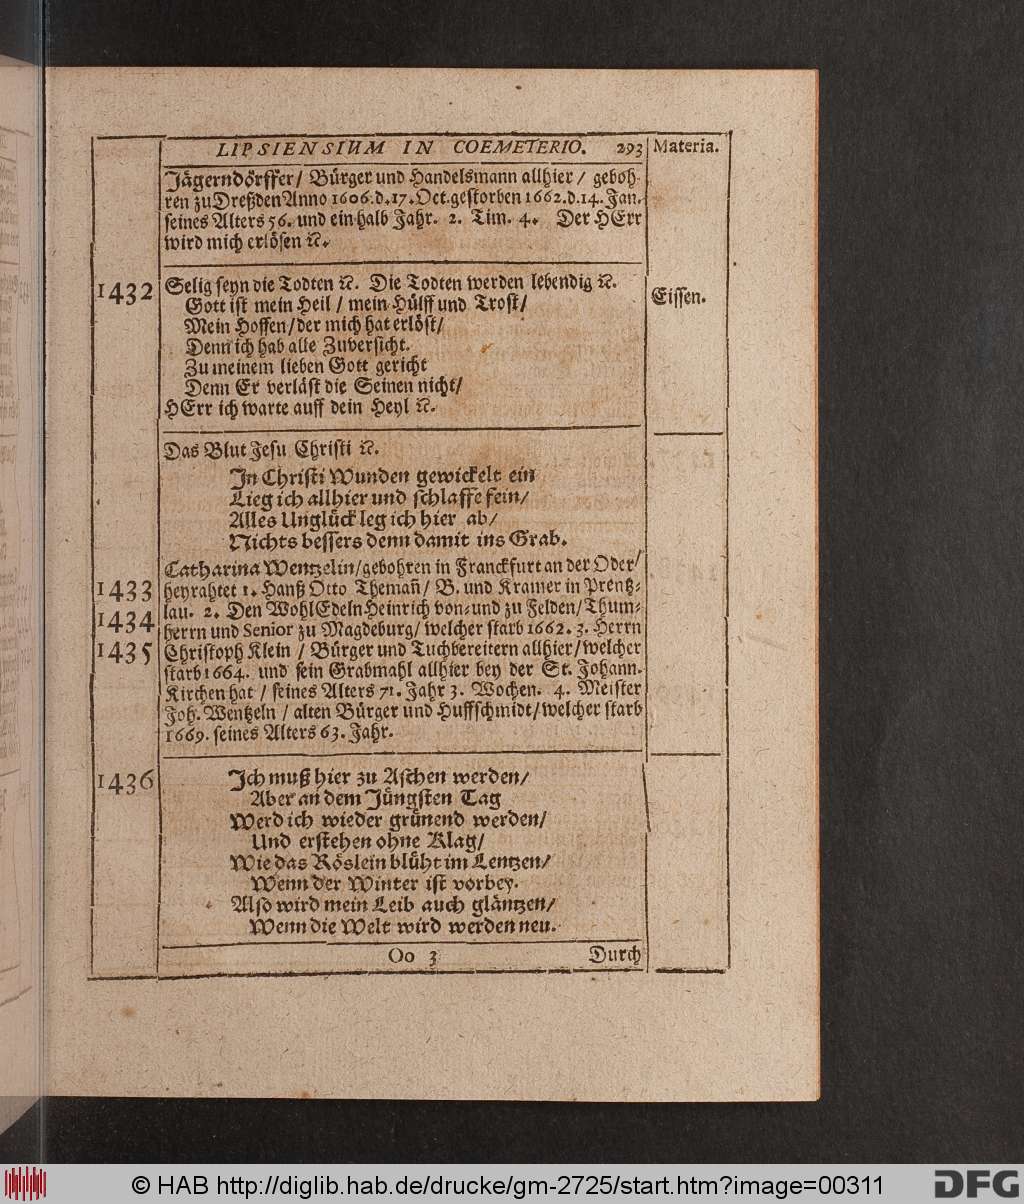 LIPSIENSIUM IN COEMETERIO. 293 Materia.
Jägerndörffer/ Bürger und Handelsmann allhier/ geboh-
ren zu Dreßden Anno 1606. d. 17. Oct. gestorben 1662. d. 14. Jan.
seines Alters 56. und ein halb Jahr. 2. Tim. 4. Der HErr
wird mich erlösen ꝛc.
1432 Selig seyn die Todten ꝛc. Die Todten werden lebendig ꝛc.
Eissen.
Gott ist mein Heil / mein Hülff und Trost/
Mein Hoffen/ der mich hat erlöst/
Denn ich hab alle Zuversicht.
Zu meinem lieben Gott gericht
Denn Er verläst die Seinen nicht/
HErr ich warte auff dein Heyl ꝛc.
Das Blut Jesu Christi ꝛc.
In Christi Wunden gewickelt ein
Lieg ich allhier und schlaffe fein/
Alles Unglück leg ich hier ab/
Nichts bessers denn damit ins Grab.
Catharina Wentzelin/ gebohren in Franckfurt an der Oder/
1433 heyrahtet 1. Hanß Otto Themañ/ B. und Kramer in Prentz-
lau. 2. Den WohlEdeln Heinrich von- und zu Felden/ Thum-
1434 herrn und Senior zu Magdeburg/ welcher starb 1662. 3. Herrn
1435 Christoph Klein / Bürger und Tuchbereitern allhier/ welcher
starb 1664. und sein Grabmahl allhier bey der St. Johann.
Kirchen hat / seines Alters 71. Jahr 3. Wochen. 4. Meister
Joh. Wentzeln / alten Bürger und Huffschmidt/ welcher starb
1669. seines Alters 63. Jahr.
1436 Ich muß hier zu Aschen werden/
Aber an dem Jüngsten Tag
Werd ich wieder grünend werden/
Und erstehen ohne Klag/
Wie das Röslein blüht im Lentzen/
Wenn der Winter ist vorbey.
Also wird mein Leib auch gläntzen/
Wenn die Welt wird werden neu.
Oo 3 Durch
© HAB http://diglib.hab.de/drucke/gm-2725/start.htm?image=00311
DFG